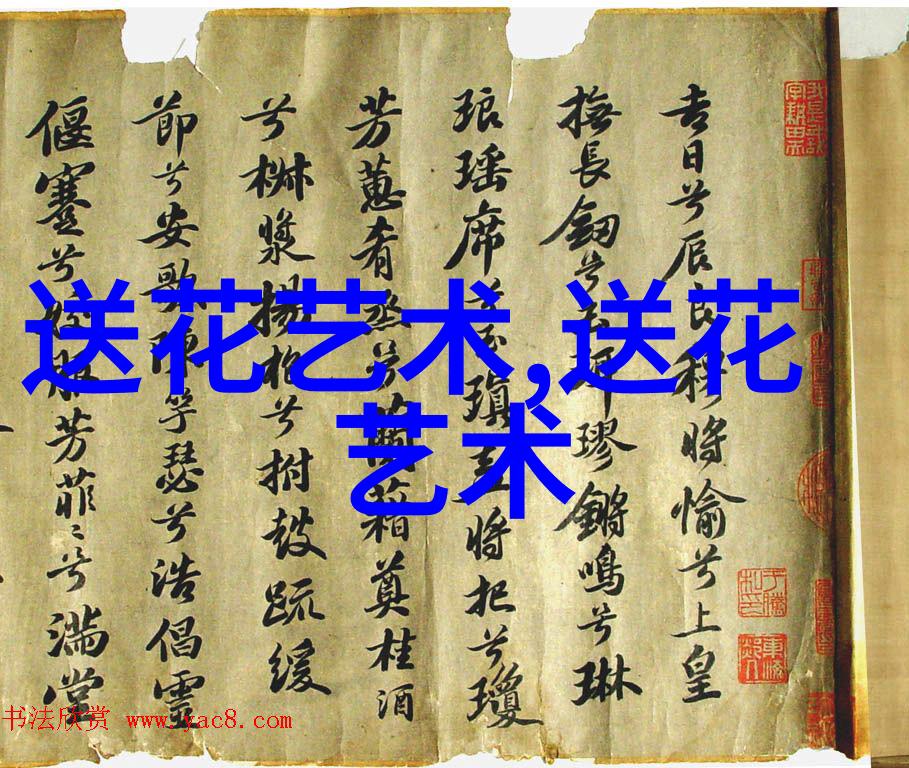 吉日兮辰良穆將愉兮上皇
撫長劒兮玉珥璆鏘鳴兮琳
琅瑶席兮玉瑱盍將把兮瓊
芳蕙肴烝兮蘭藉奠桂酒
兮椒漿揚枹兮拊鼓疏緩
節兮安歌陳竽瑟兮浩倡靈
偃蹇兮姣服芳菲〻兮滿堂
送花艺术,送花
艺术
书法欣赏 www.yac8.com